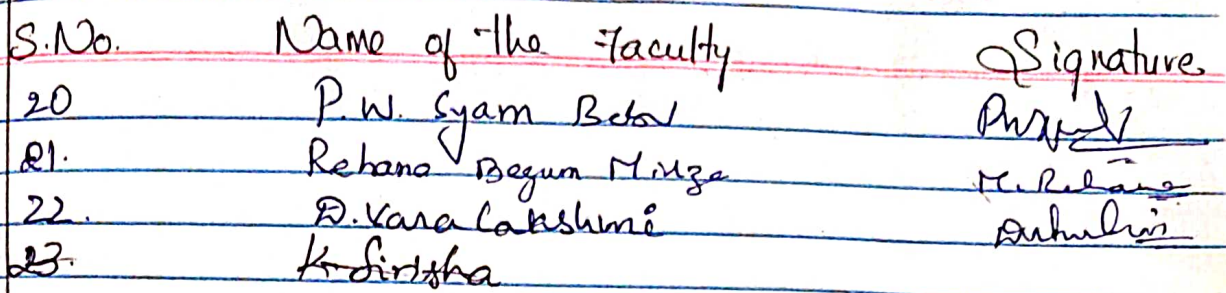 S.No. Name of the Faculty Signature
20 P.W. Syam
21. Rehana Begum Mirza M. Rehana
22. D. Vara Lakshmi
23. K. Sirisha